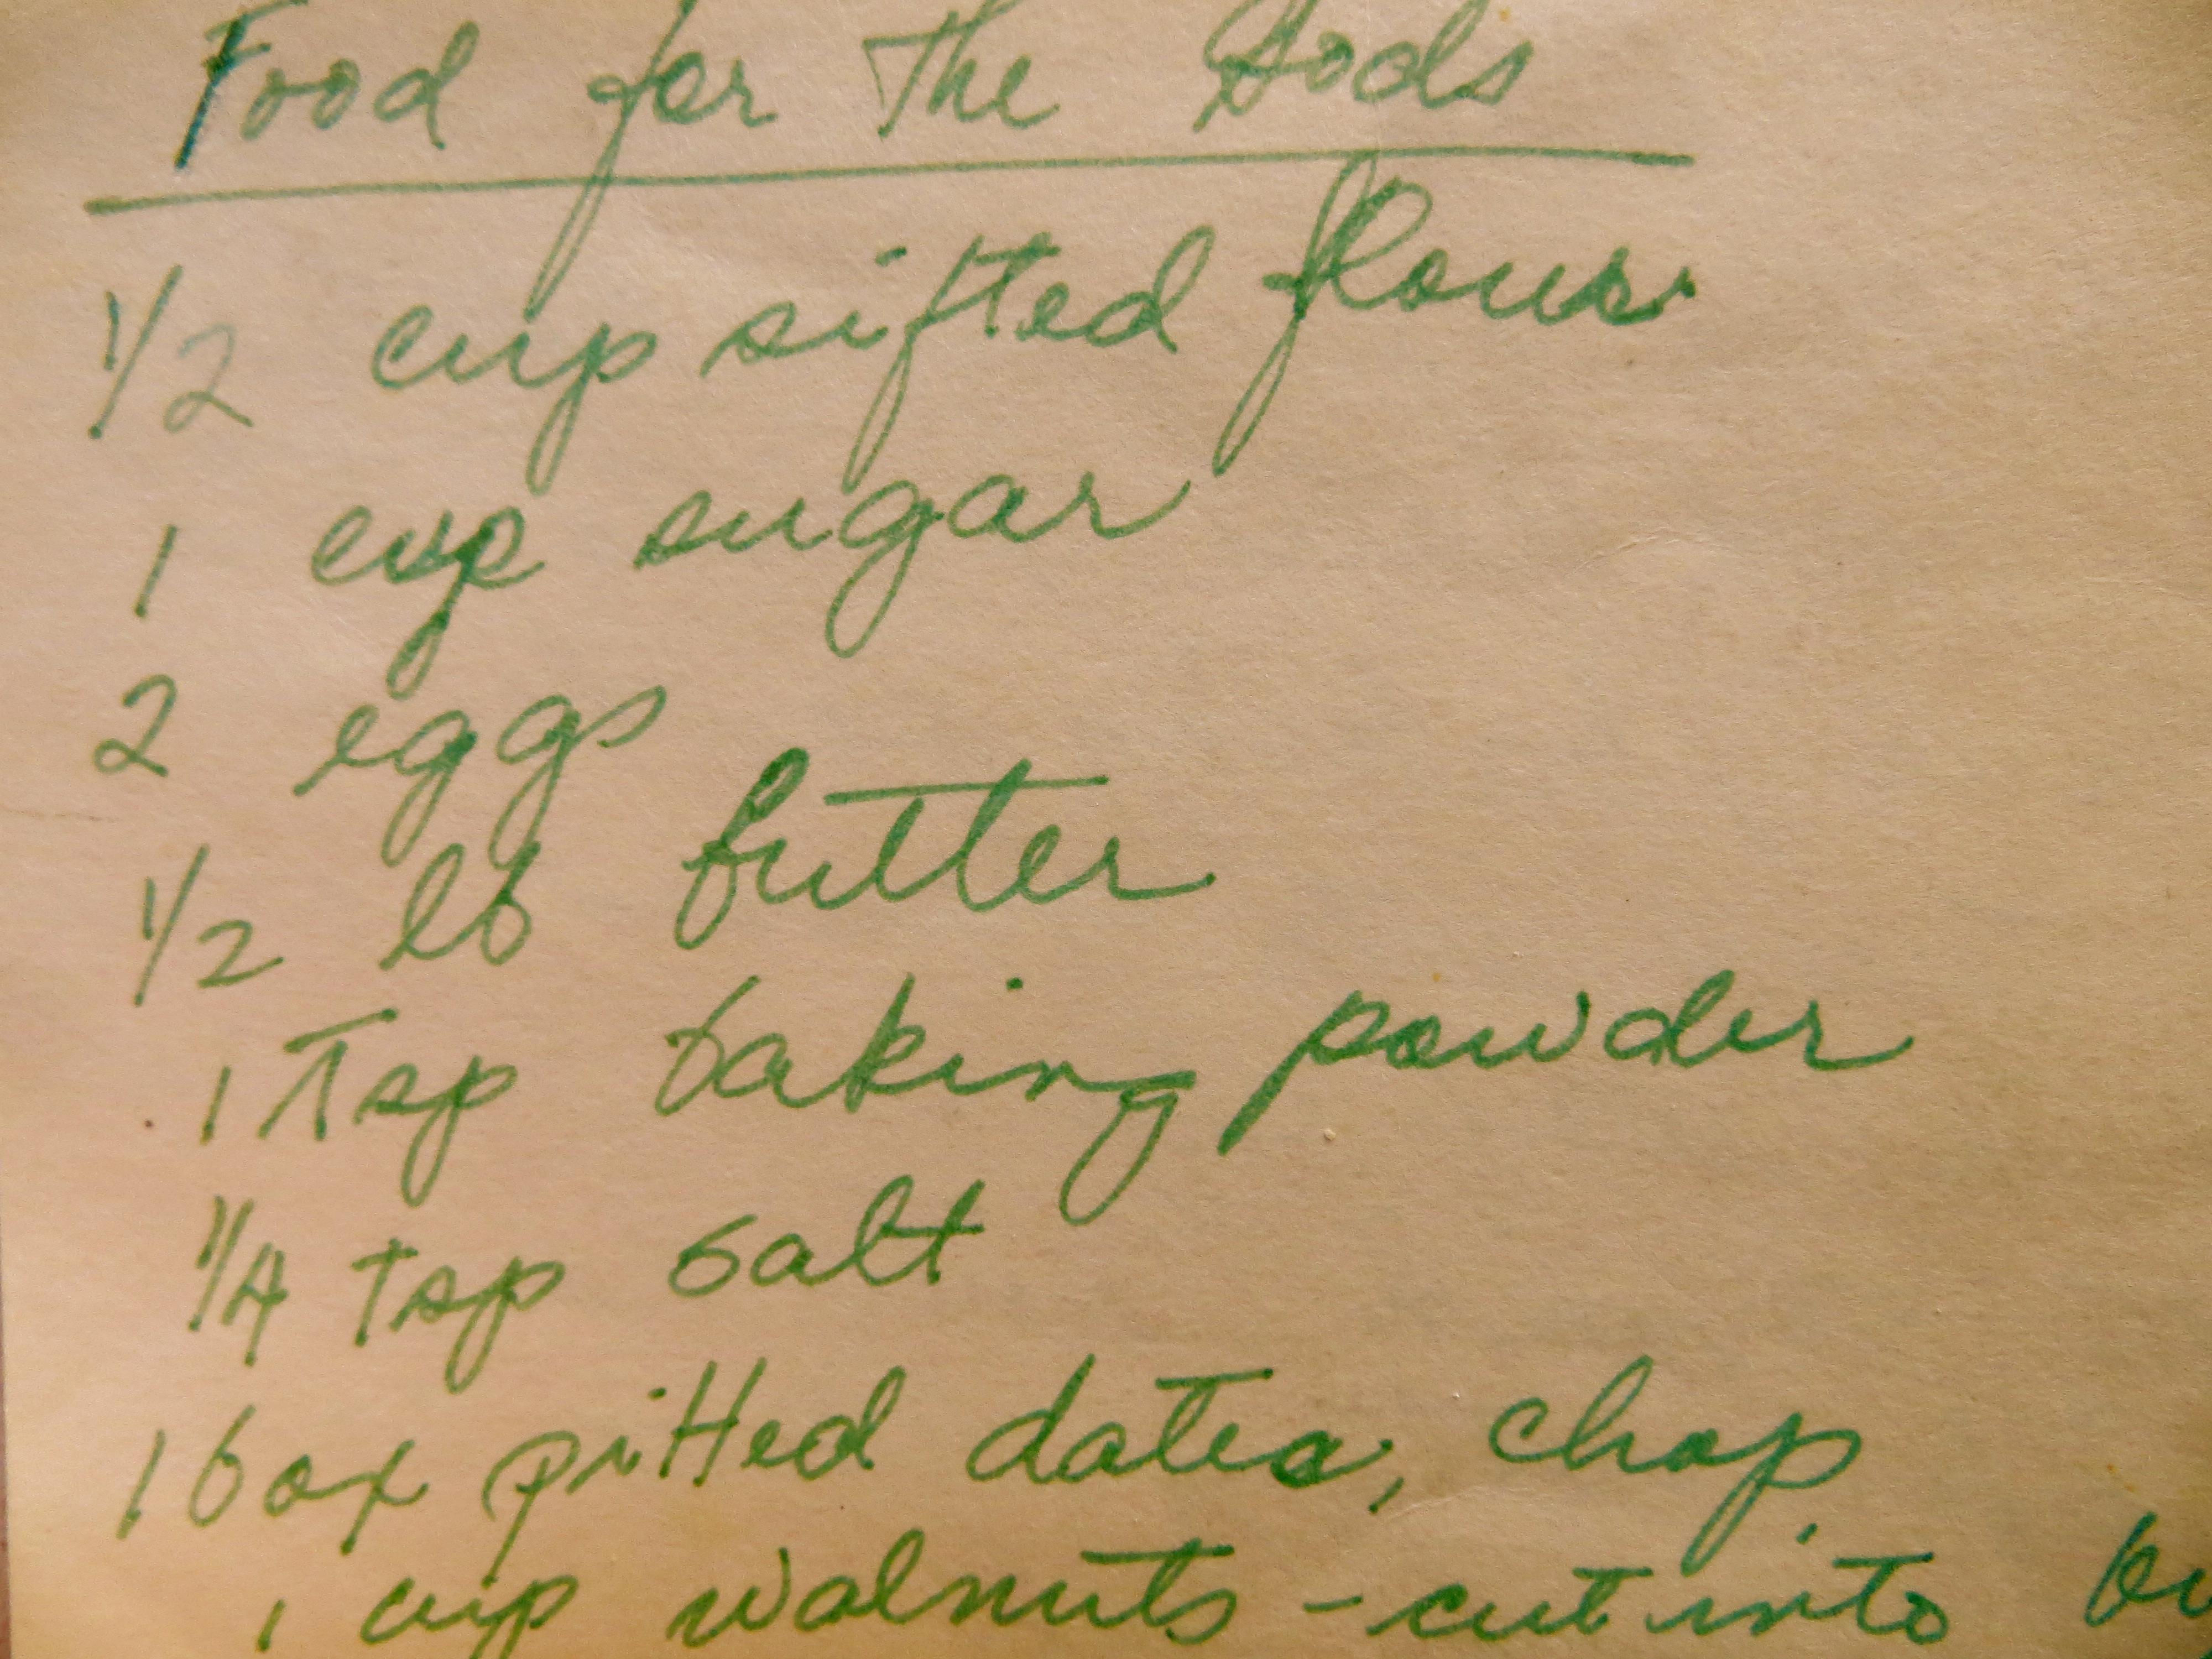 Food for The Gods
1/2 cup sifted flour
1 cup sugar
2 eggs
1/2 lb butter
1 Tsp baking powder
1/4 Tsp salt
1 box pitted dates, chop
1 cup walnuts - cut into